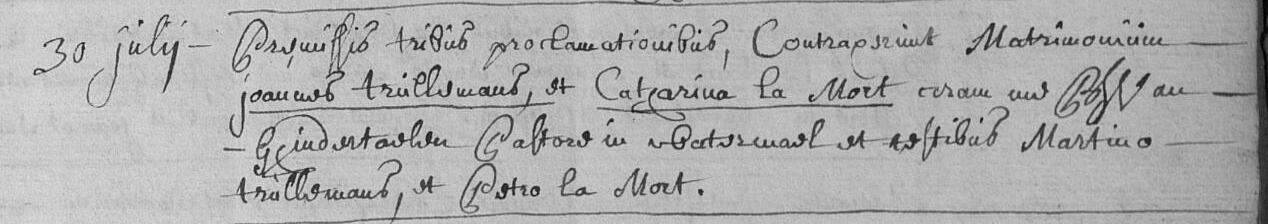 30 julij - Praemissis tribus proclamationibus, Contraxerunt Matrimonium
joannes trullemans, et Catharina la Mort coram me van
Ghindertaelen Pastore in watermael et testibus Martino
trullemans, et Petro la Mort.